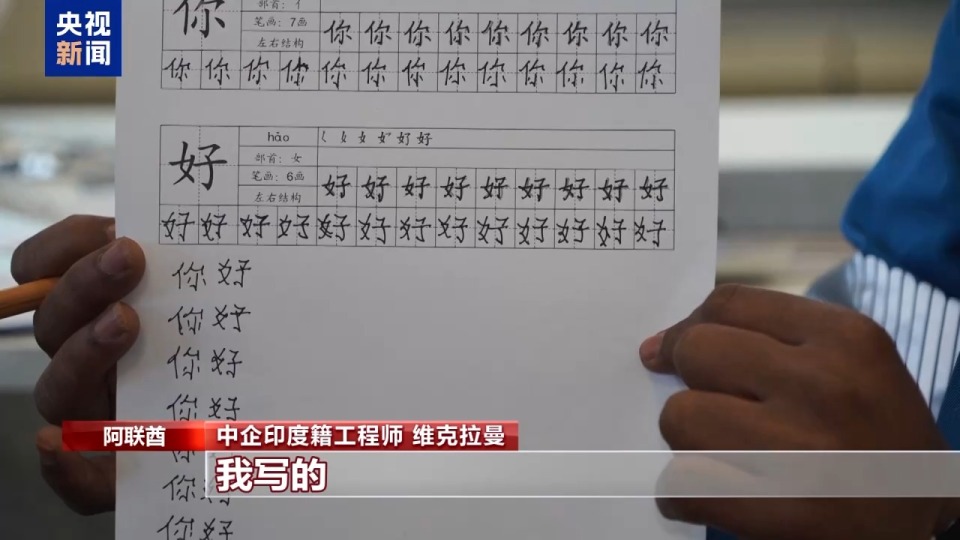 央视
新闻
你
部首：亻
笔画：7画
左右结构
你你你你你你你你你
你你你你你你你你你你你你你
好
hǎo
部首：女
笔画：6画
左右结构
好好好好好好好好好
好好好好好好好好好好好好好
你好
你好
你好
你好
你好
你好
阿联酋
中企印度籍工程师 维克拉曼
我写的